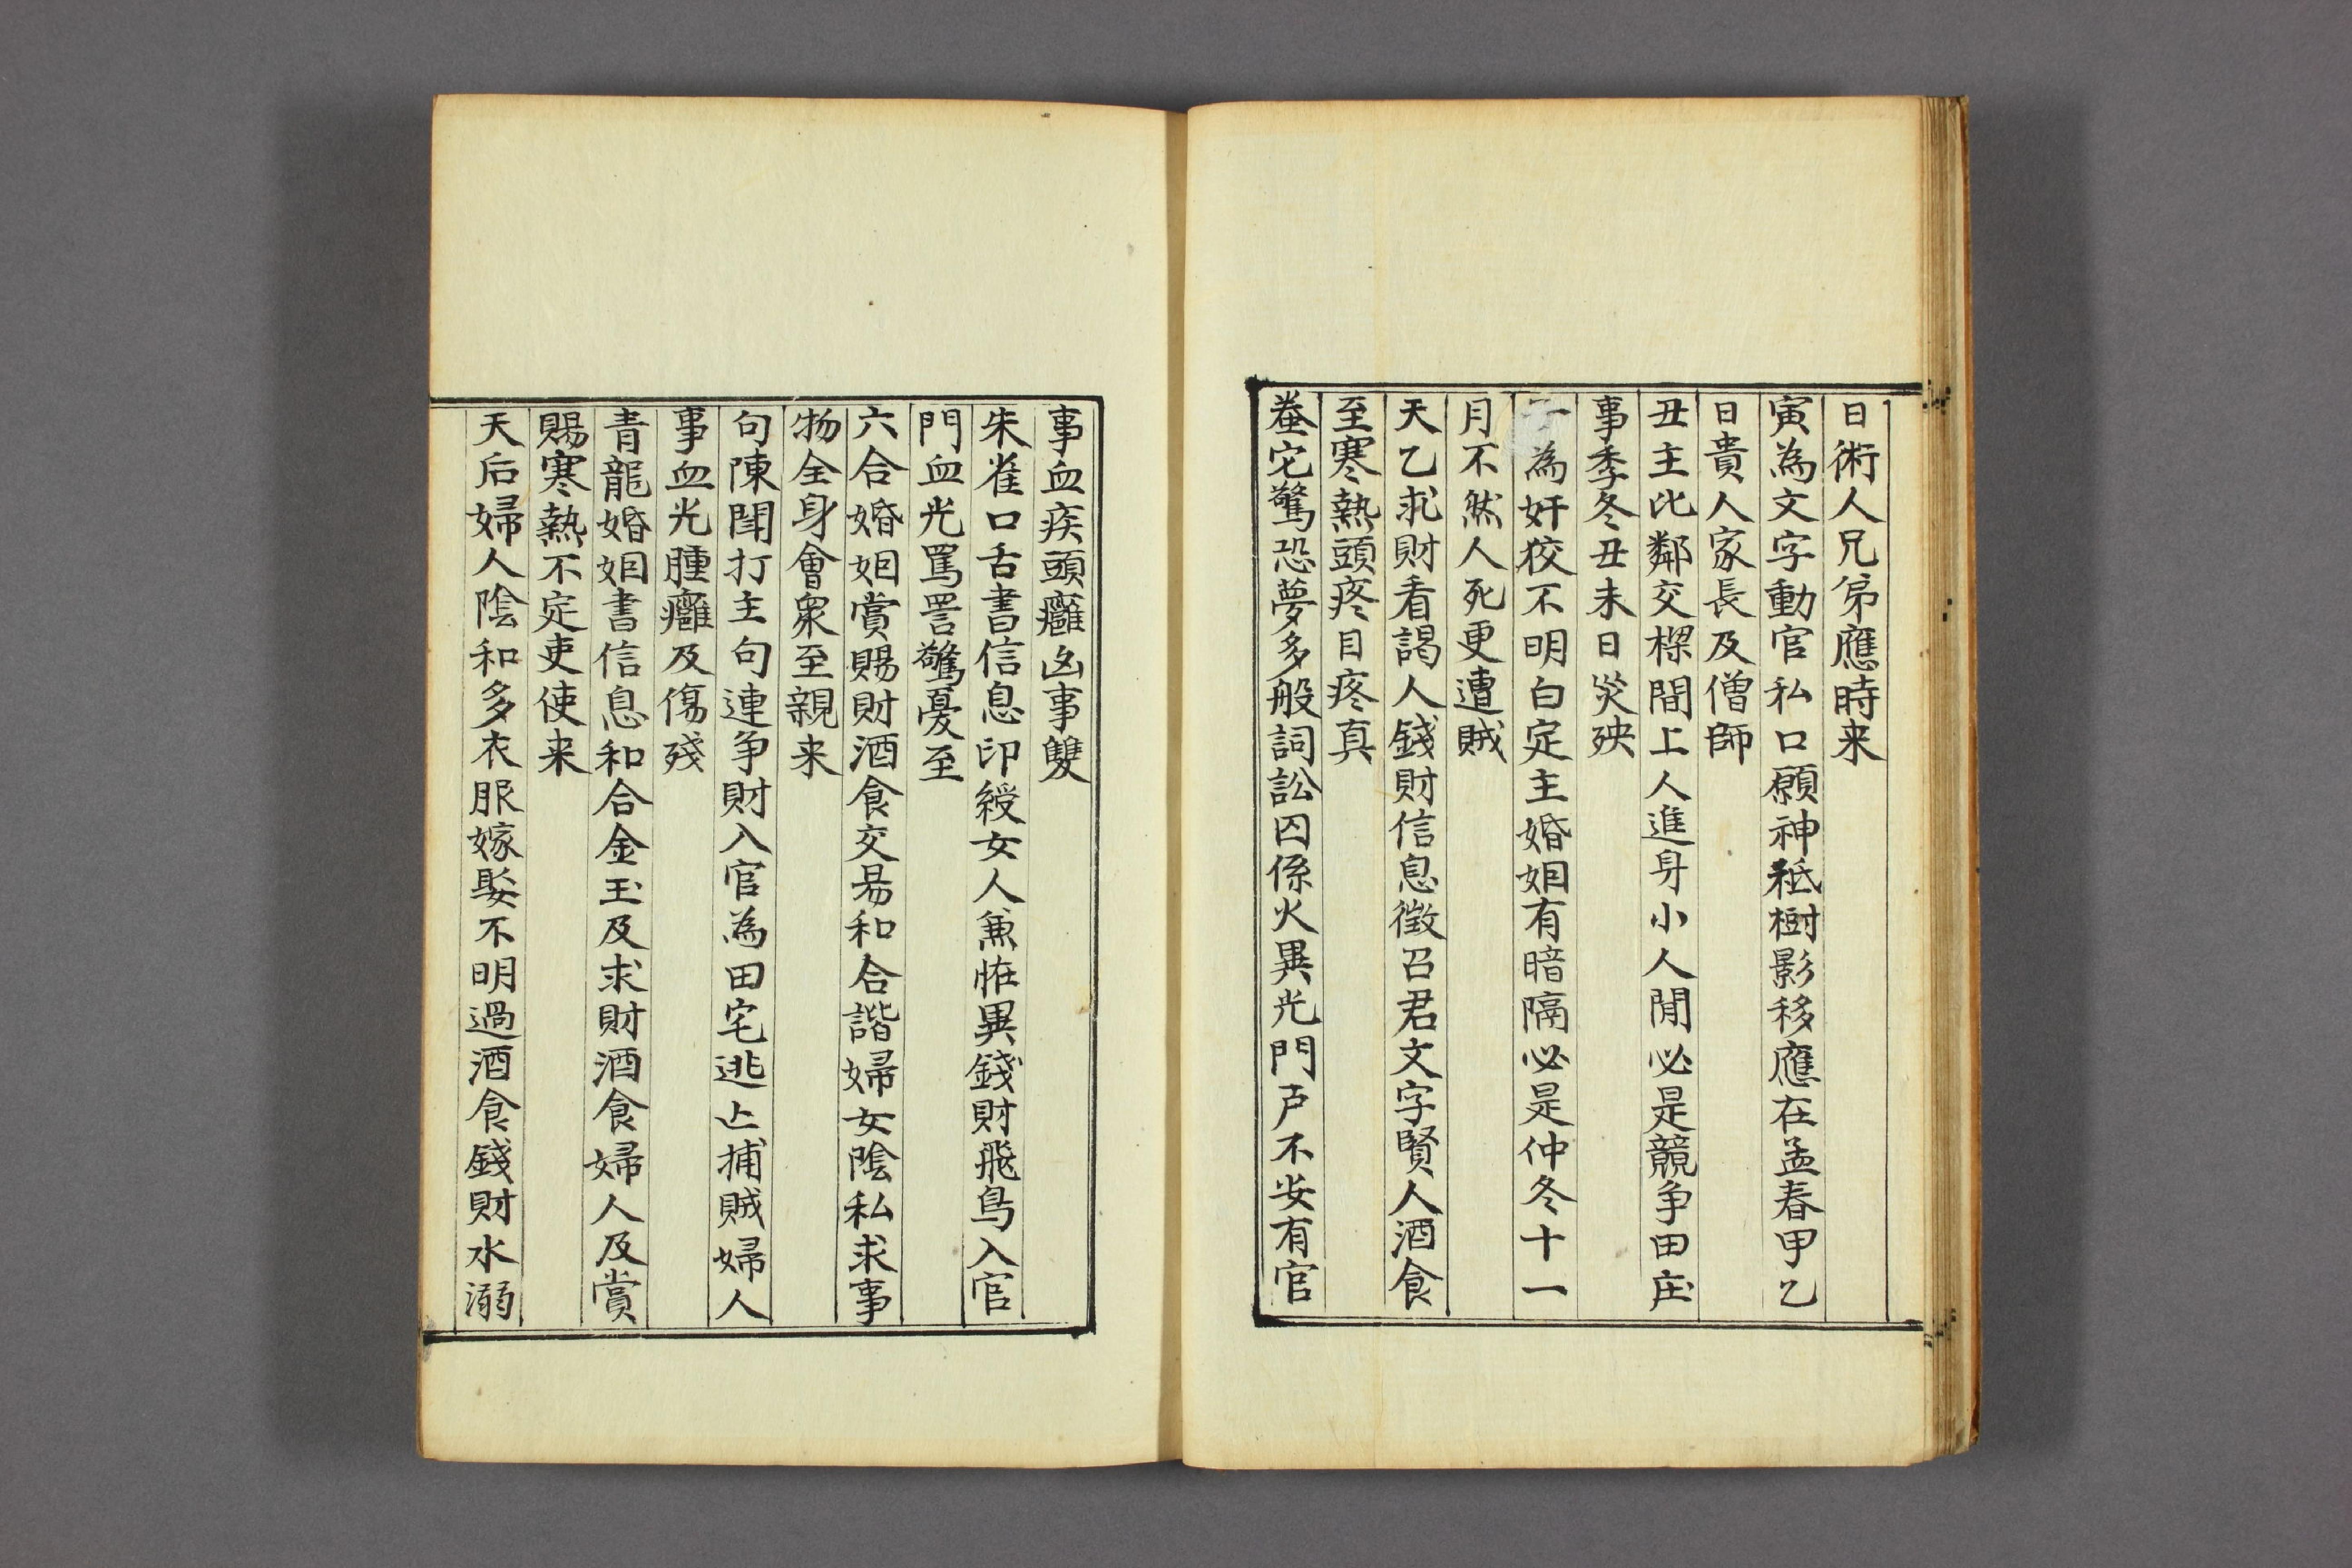 日術人兄弟應時来
寅為文字動官私口願神秖樹影移應在孟春甲乙
日貴人家長及僧師
丑主比鄰交樑間上人進身小人閒必是競争田庄
事季冬丑未日災殃
為奸狡不明白定主婚姻有暗隔必是仲冬十一
月不然人死更遭賊
天乙求財看謁人錢財信息徴召君文字賢人酒食
至寒熱頭疼目疼真
螣它驚恐夢多般詞訟囚係火異光門戸不安有官
事血疾頭癰凶事雙
朱雀口舌書信息印綬女人兼恠異錢財飛鳥入官
門血光罵詈驚憂至
六合婚姻賞賜財酒食交易和合諧婦女陰私求事
物全身會衆至親来
句陳閗打主句連争財入官為田宅逃亡捕賊婦人
事血光腫癰及傷殘
青龍婚姻書信息和合金玉及求財酒食婦人及賞
賜寒熱不定吏使来
天后婦人陰和多衣服嫁娶不明過酒食錢財水溺